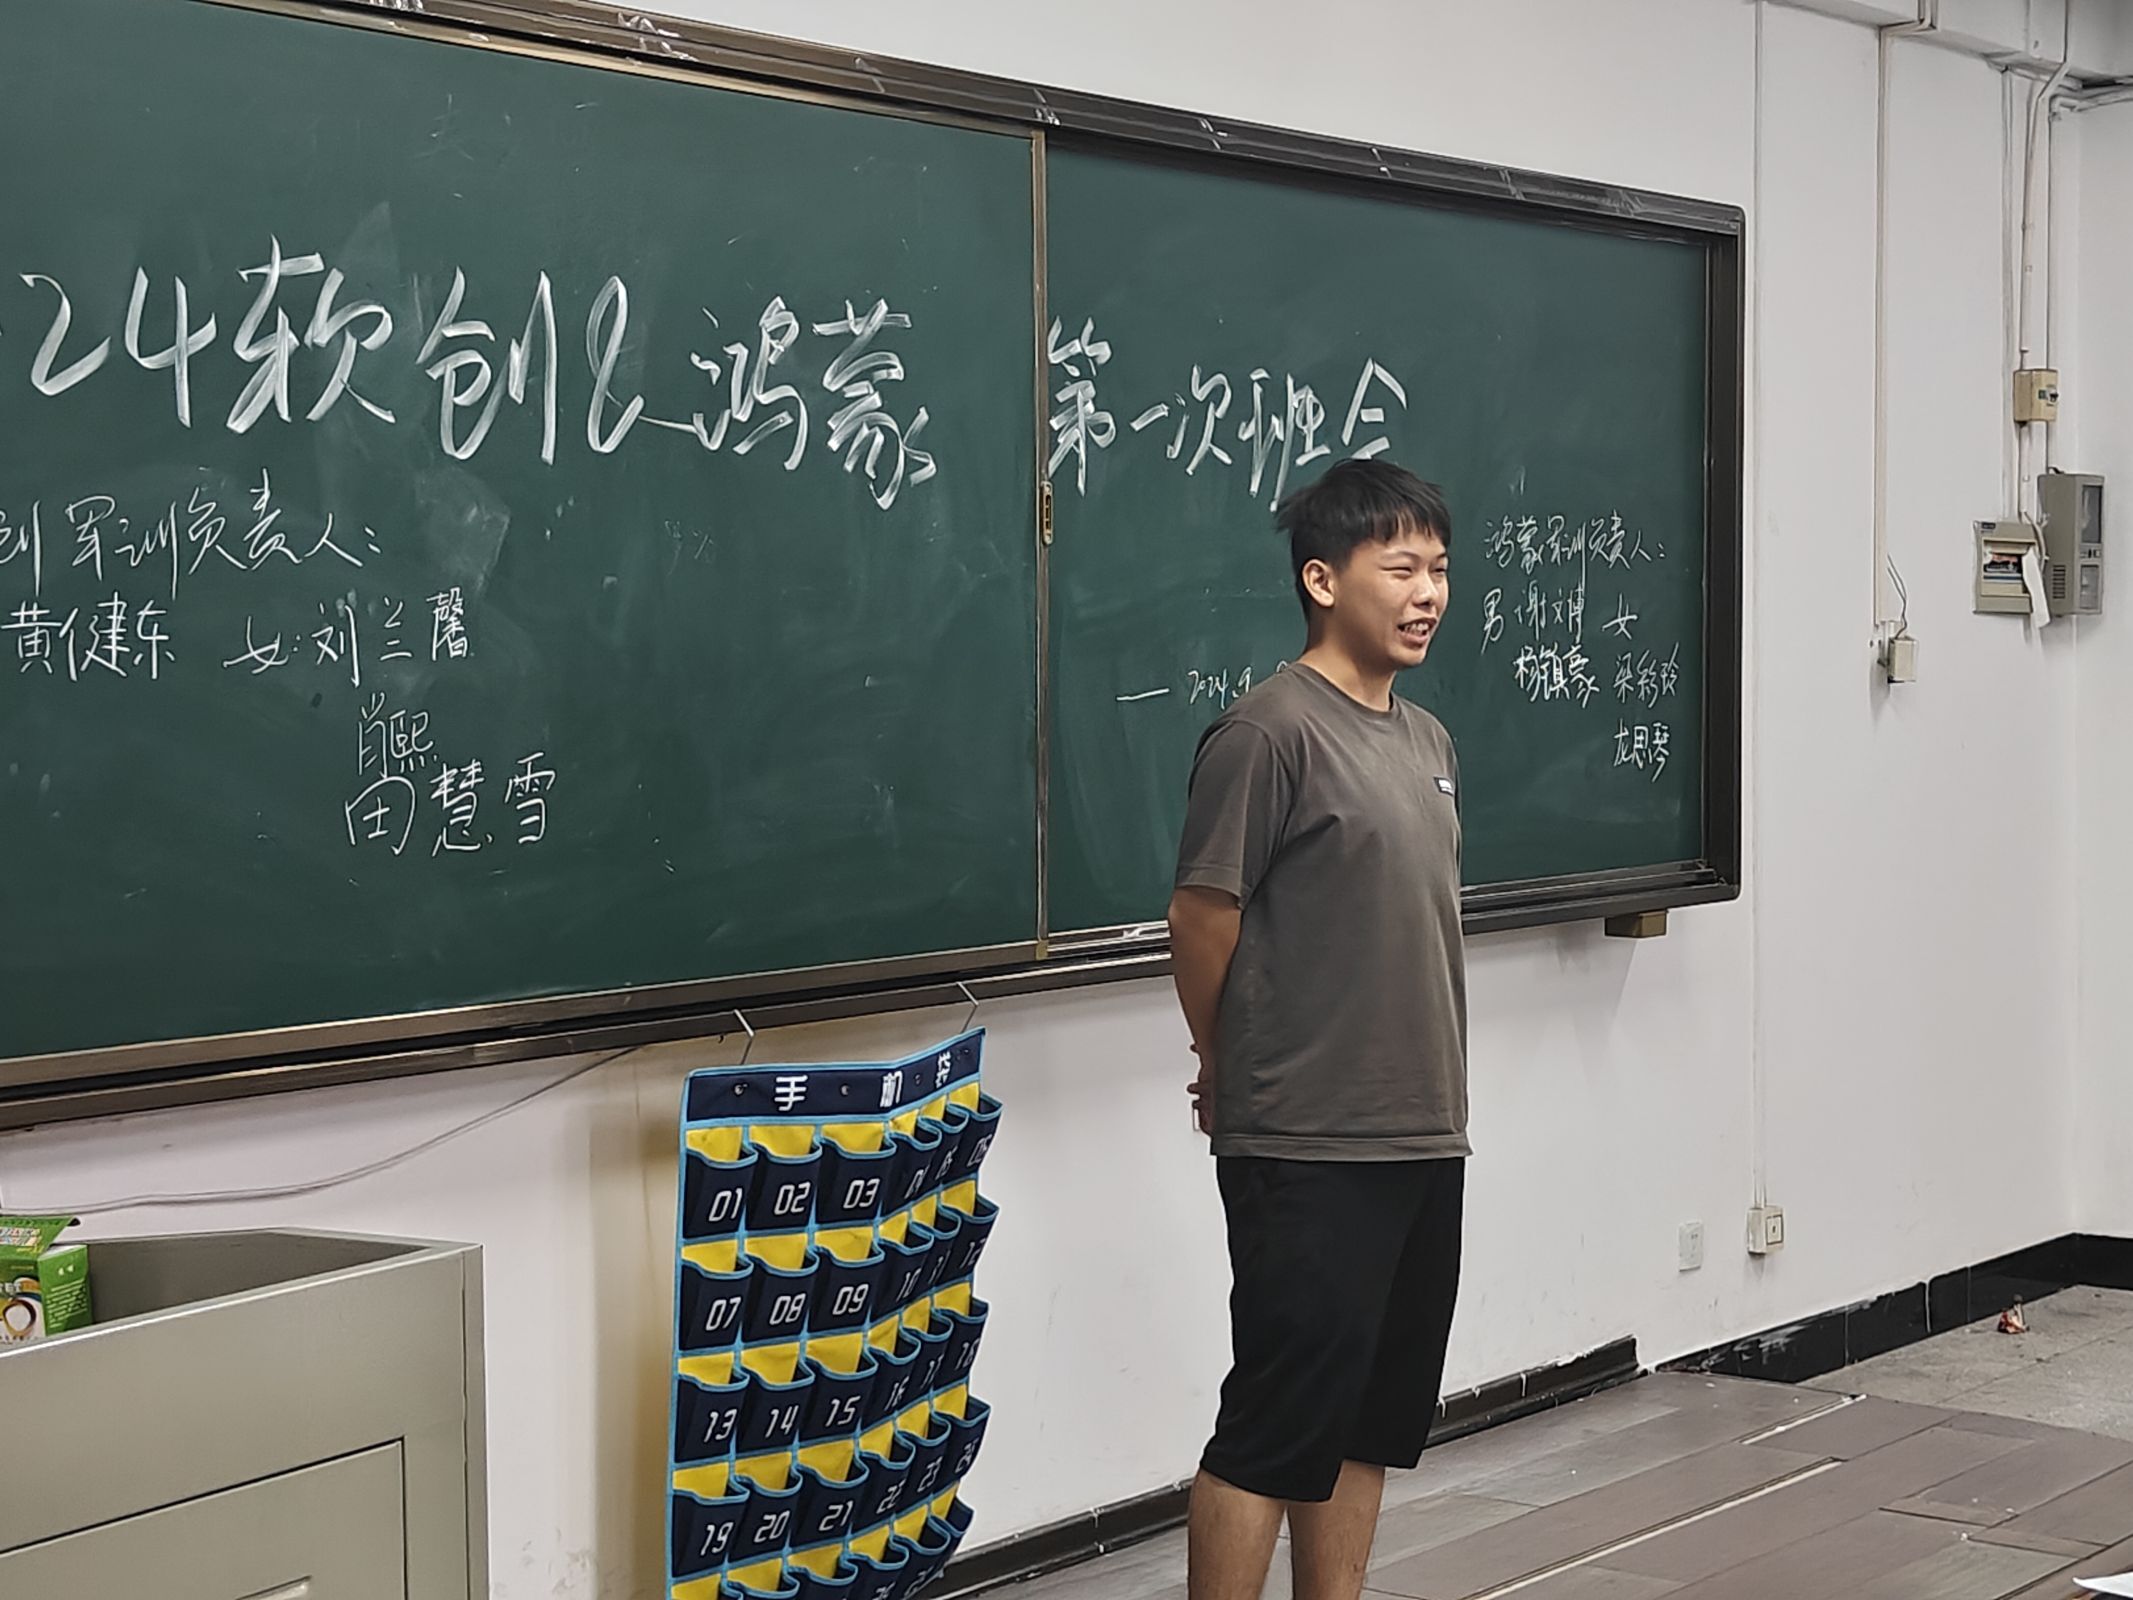 24软创&鸿蒙 第一次班会
创军训负责人:
黄健东 女:刘兰馨
肖熙
田慧雪
— 2024.9
鸿蒙军训负责人:
男 谢文博 女
杨镇豪 梁彩玲
龙思琴
手机袋
01 02 03 04 05 06
07 08 09 10 11 12
13 14 15 16 17 18
19 20 21 22 23 24